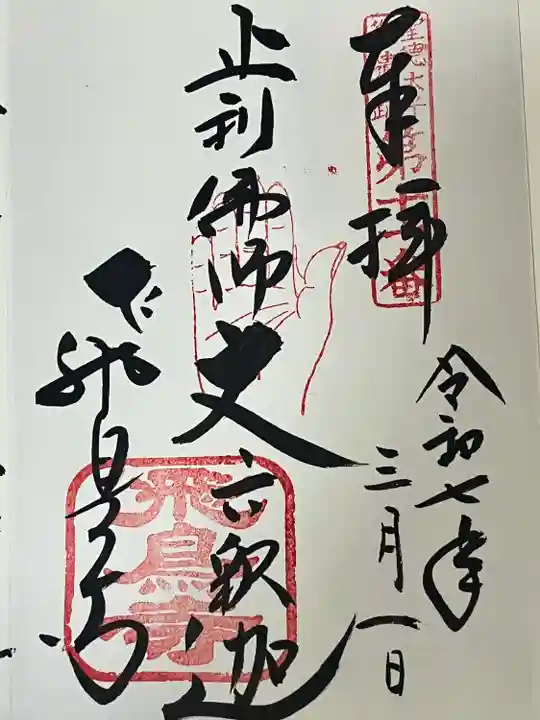 奉拝
聖徳太子御遺跡第十一番
令和七年
三月一日
止利佛師
丈六釈迦
飛鳥寺
飛鳥寺